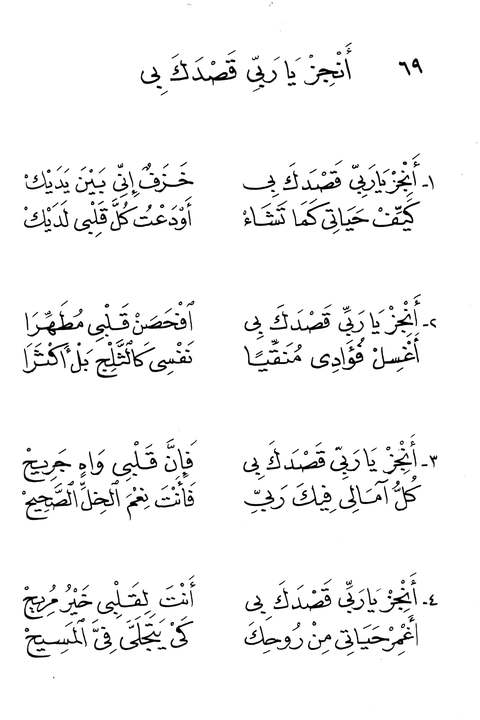 ٦٩ أَنْجِزْ يَا رَبِّي قَصْدَكَ بِي
١- أَنْجِزْ يَارَبِّي قَصْدَكَ بِي خَزَفٌ إِنِّي بَيْنَ يَدَيْكْ
كَيِّفْ حَيَاتِي كَمَا تَشَاءْ أَوْدَعْتُ كُلَّ قَلْبِي لَدَيْكْ
٢- أَنْجِزْ يَا رَبِّي قَصْدَكَ بِي افْحَصَنْ قَلْبِي مُطَهِّرَا
أَغْسِلْ فُؤَادِي مُنَقِّيًا نَفْسِي كَالثَّلْجِ بَلْ أَكْثَرَا
٣- أَنْجِزْ يَا رَبِّي قَصْدَكَ بِي فَإِنَّ قَلْبِي وَاهٍ جَرِيحْ
كُلُّ آمَالِي فِيكَ رَبِّي فَأَنْتَ نِعْمَ الْخِلُّ الصَّحِيحْ
٤- أَنْجِزْ يَارَبِّي قَصْدَكَ بِي أَنْتَ لِقَلْبِي خَيْرُ مُرِيحْ
أَغْمِرْ حَيَاتِي مِنْ رُوحِكَ كَيْ يَتَجَلَّى فِيَّ الْمَسِيحْ